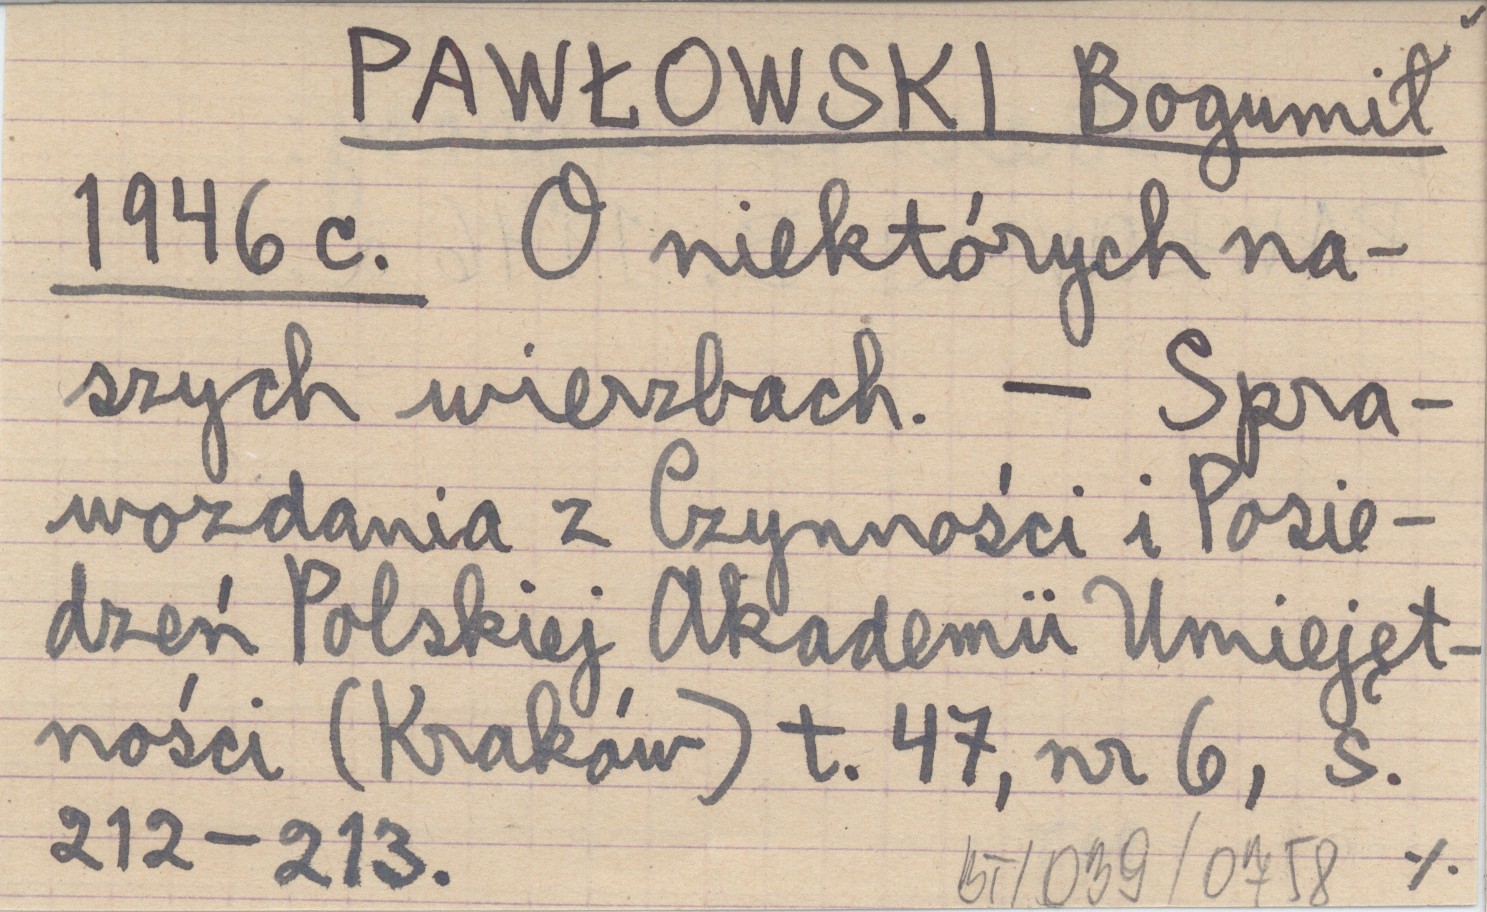 PAWŁOWSKI Bogumił
1946c. O niektórych na-
szych wierzbach. — Spra-
wozdania z Czynności i Posie-
dzeń Polskiej Akademii Umiejęt-
ności (Kraków) t. 47, nr 6, s.
212-213.
/039/0758 ·/.